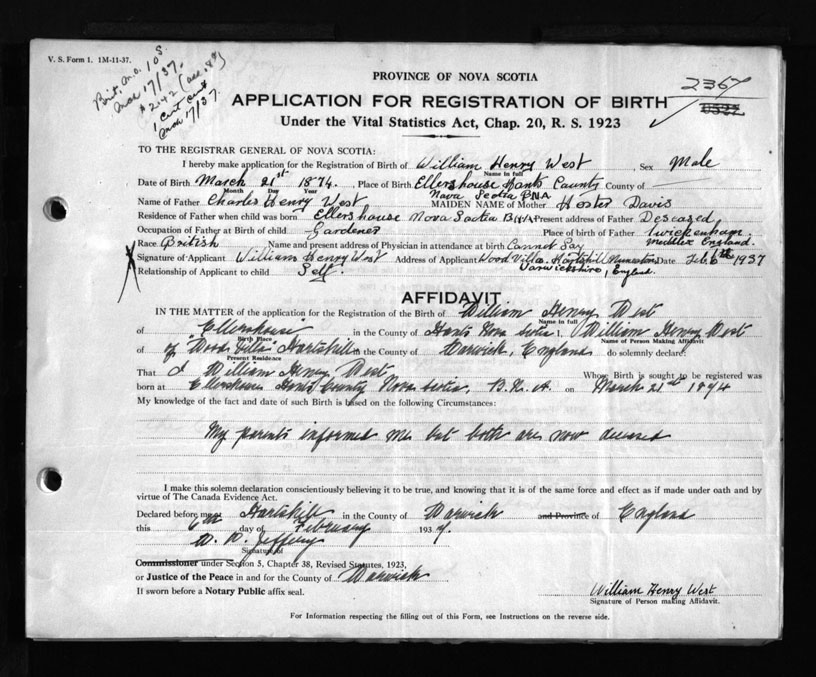 V. S. Form 1. 1M-11-37.
Mar 17/37.
$2.42
PROVINCE OF NOVA SCOTIA
2367
APPLICATION FOR REGISTRATION OF BIRTH
Under the Vital Statistics Act, Chap. 20, R. S. 1923
TO THE REGISTRAR GENERAL OF NOVA SCOTIA:
I hereby make application for the Registration of Birth of William Henry West, Sex Male
Name in full
Date of Birth March 21st 1874. Place of Birth Ellershouse Hants County County of
Month Day Year
Nova Scotia BNA
Name of Father Charles Henry West MAIDEN NAME of Mother Hester Davis
Residence of Father when child was born Ellershouse Nova Scotia BNA Present address of Father Deceased
Occupation of Father at Birth of child Gardener Place of birth of Father Twickenham.
Middlex England.
Race British Name and present address of Physician in attendance at birth Cannot Say
Signature of Applicant William Henry West Address of Applicant Wood Villa. Hartshill Nuneaton, Date Feb. 6th 1937
Relationship of Applicant to child Self. Warwickshire, England.
AFFIDAVIT
IN THE MATTER of the application for the Registration of the Birth of William Henry West
Name in full
of Ellershouse in the County of Hants Nova Scotia I, William Henry West
Birth Place Name of Person Making Affidavit
of Wood Villa Hartshill in the County of Warwick, England do solemnly declare:
Present Residence
That I William Henry West Whose Birth is sought to be registered was
born at Ellershouse Hants County Nova Scotia, B.N.A. on March 21st 1874
My knowledge of the fact and date of such Birth is based on the following Circumstances:
My parents informed me but both are now deceased
I make this solemn declaration conscientiously believing it to be true, and knowing that it is of the same force and effect as if made under oath and by
virtue of The Canada Evidence Act.
Declared before me at Hartshill in the County of Warwick and Province of England
this 6th day of February 1937.
Signature of
Commissioner under Section 5, Chapter 38, Revised Statutes, 1923,
or Justice of the Peace in and for the County of Warwick
If sworn before a Notary Public affix seal.
William Henry West
Signature of Person making Affidavit.
For Information respecting the filling out of this Form, see Instructions on the reverse side.